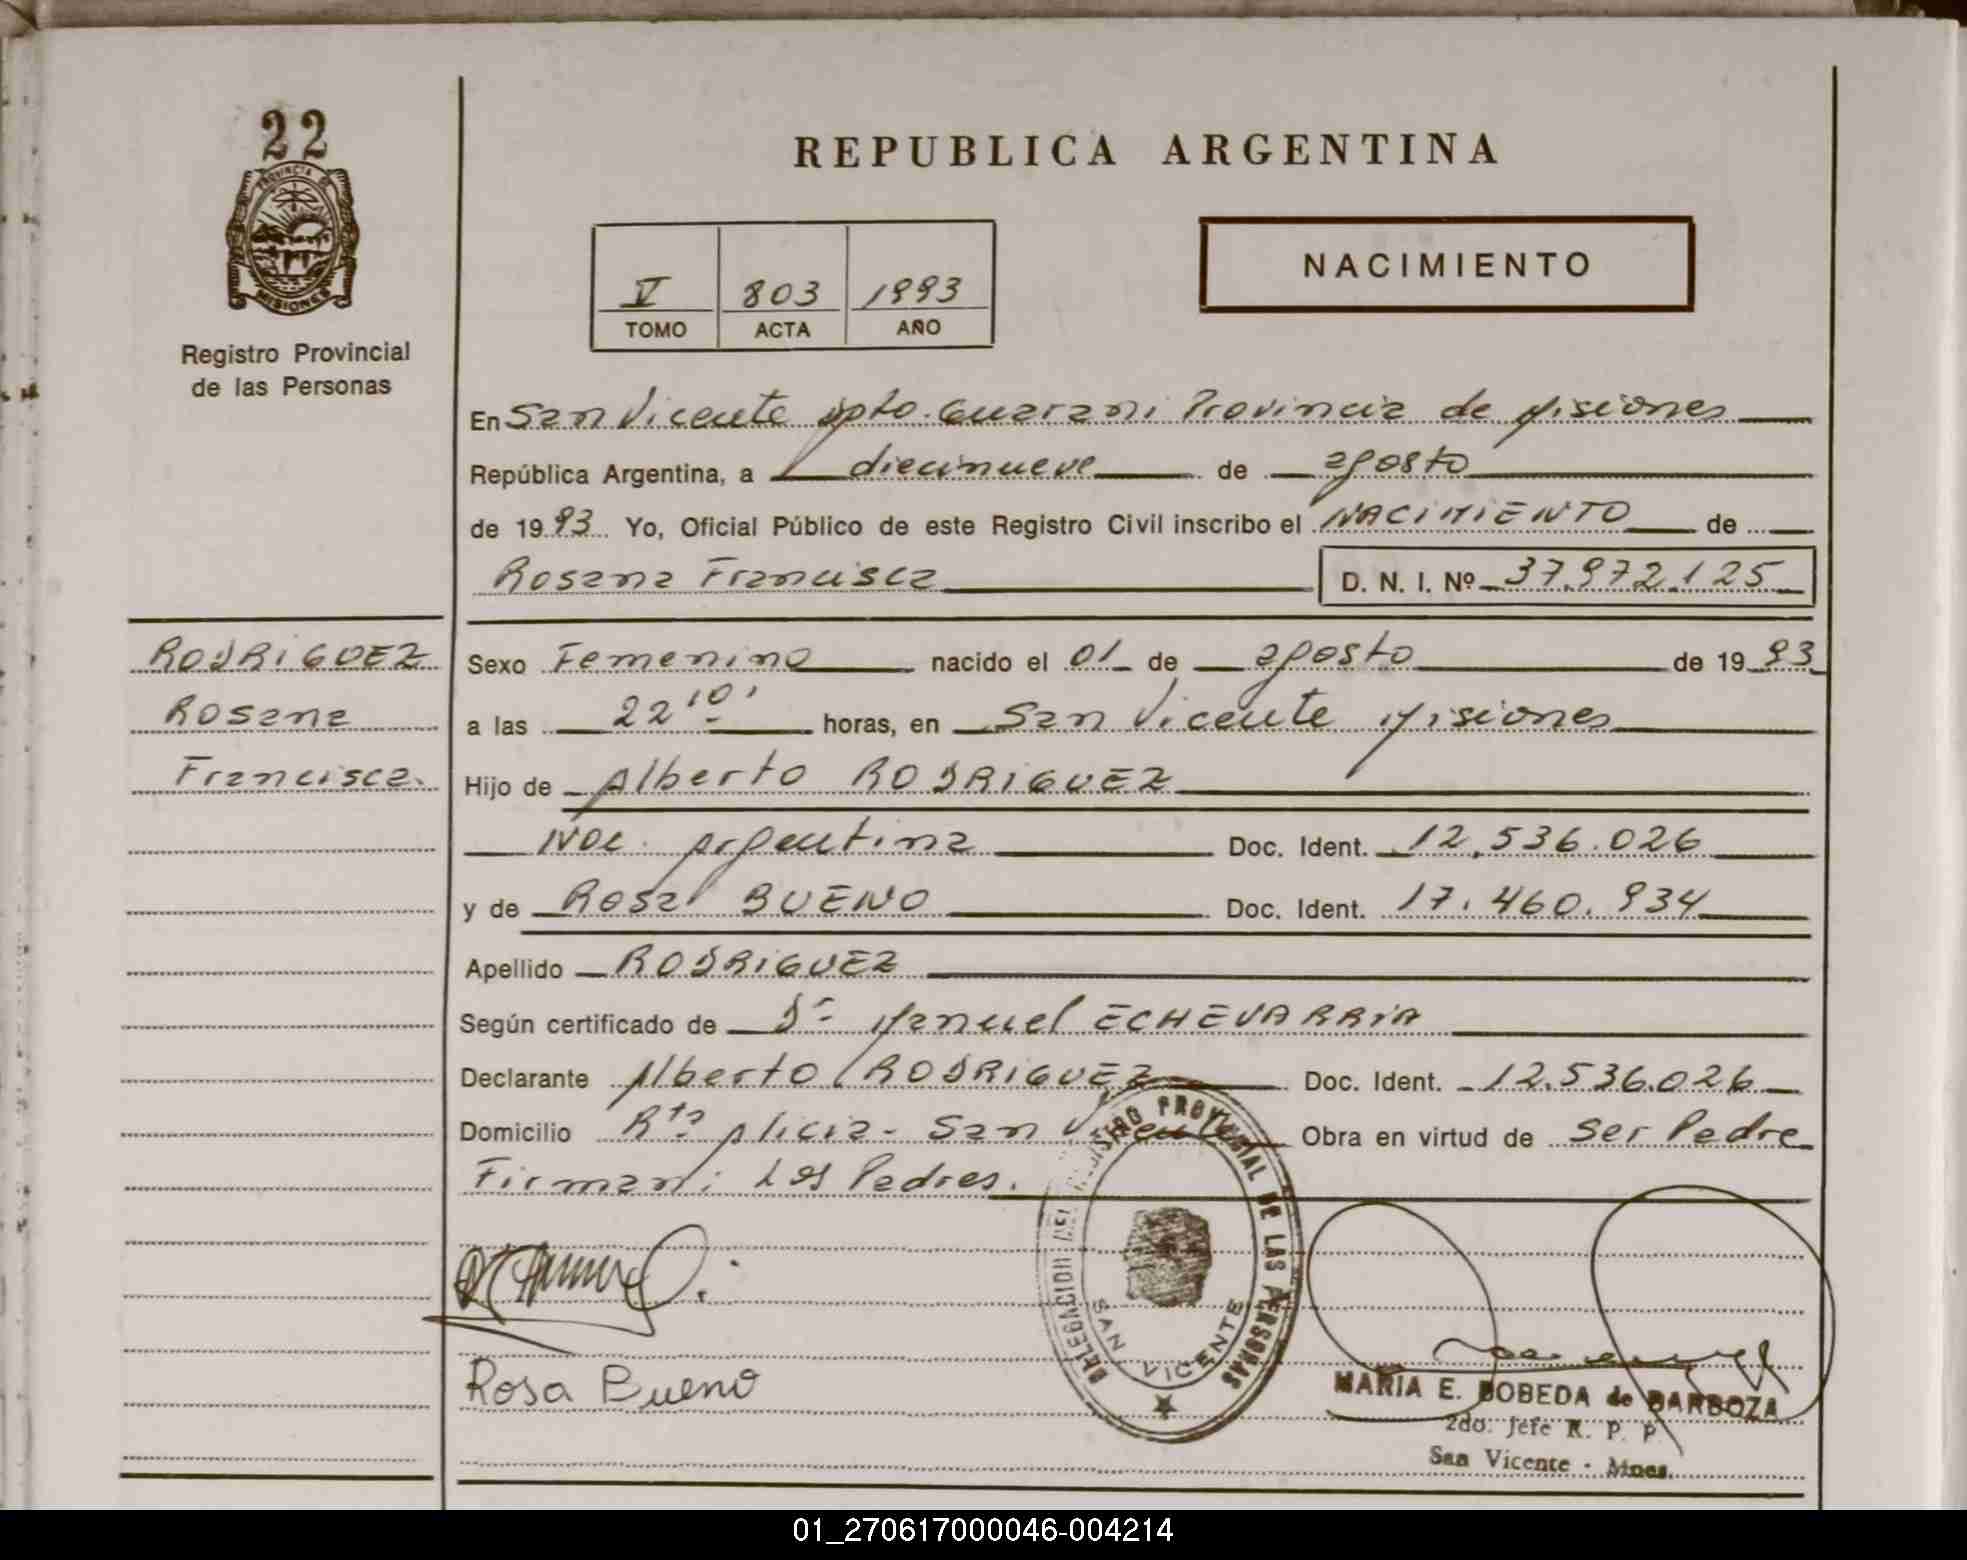 22
PROVINCIA DE
MISIONES
Registro Provincial
de las Personas
REPUBLICA ARGENTINA
V 803 1993
TOMO ACTA AÑO
NACIMIENTO
En San Vicente Dpto. Guarani Provincia de Misiones
República Argentina, a diecinueve de agosto
de 1993 Yo, Oficial Público de este Registro Civil inscribo el NACIMIENTO de
Rosana Francisca D. N. I. Nº 37.972.125
RODRIGUEZ
Rosana
Francisca.
Sexo Femenino nacido el 01 de agosto de 1993
a las 22'10' horas, en San Vicente Misiones
Hijo de Alberto RODRIGUEZ
Nac. Argentina Doc. Ident. 12.536.026
y de Rosa BUENO Doc. Ident. 17.460.934
Apellido RODRIGUEZ
Según certificado de Dr Manuel ECHEVARRIA
Declarante Alberto RODRIGUEZ Doc. Ident. 12.536.026
Domicilio Rta Alicia - San Vicente Obra en virtud de Ser Padre
Firman: Los Padres.
DELEGACION DEL REGISTRO PROVINCIAL DE LAS PERSONAS
SAN VICENTE
Rosa Bueno
MARIA E. BOBEDA de BARBOZA
2do. Jefe R. P. P.
San Vicente - Mnes.
01_270617000046-004214